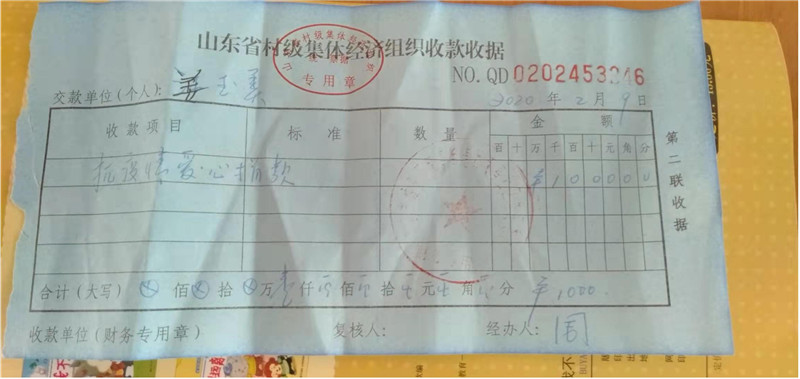 山东省村级集体经济组织收款收据
专用章
NO. QD 0202453246
交款单位(个人): 姜玉美
2020年2月9日
收款项目 标准 数量 金额
百 十 万 千 百 十 元 角 分
抗疫情爱心捐款 ¥ 1 0 0 0 0 0
合计(大写) ⊗ 佰 ⊗ 拾 ⊗ 万 壹 仟 零 佰 零 拾 零 元 零 角 零 分 ¥1000.
收款单位(财务专用章) 复核人: 经办人: 周
第二联收据